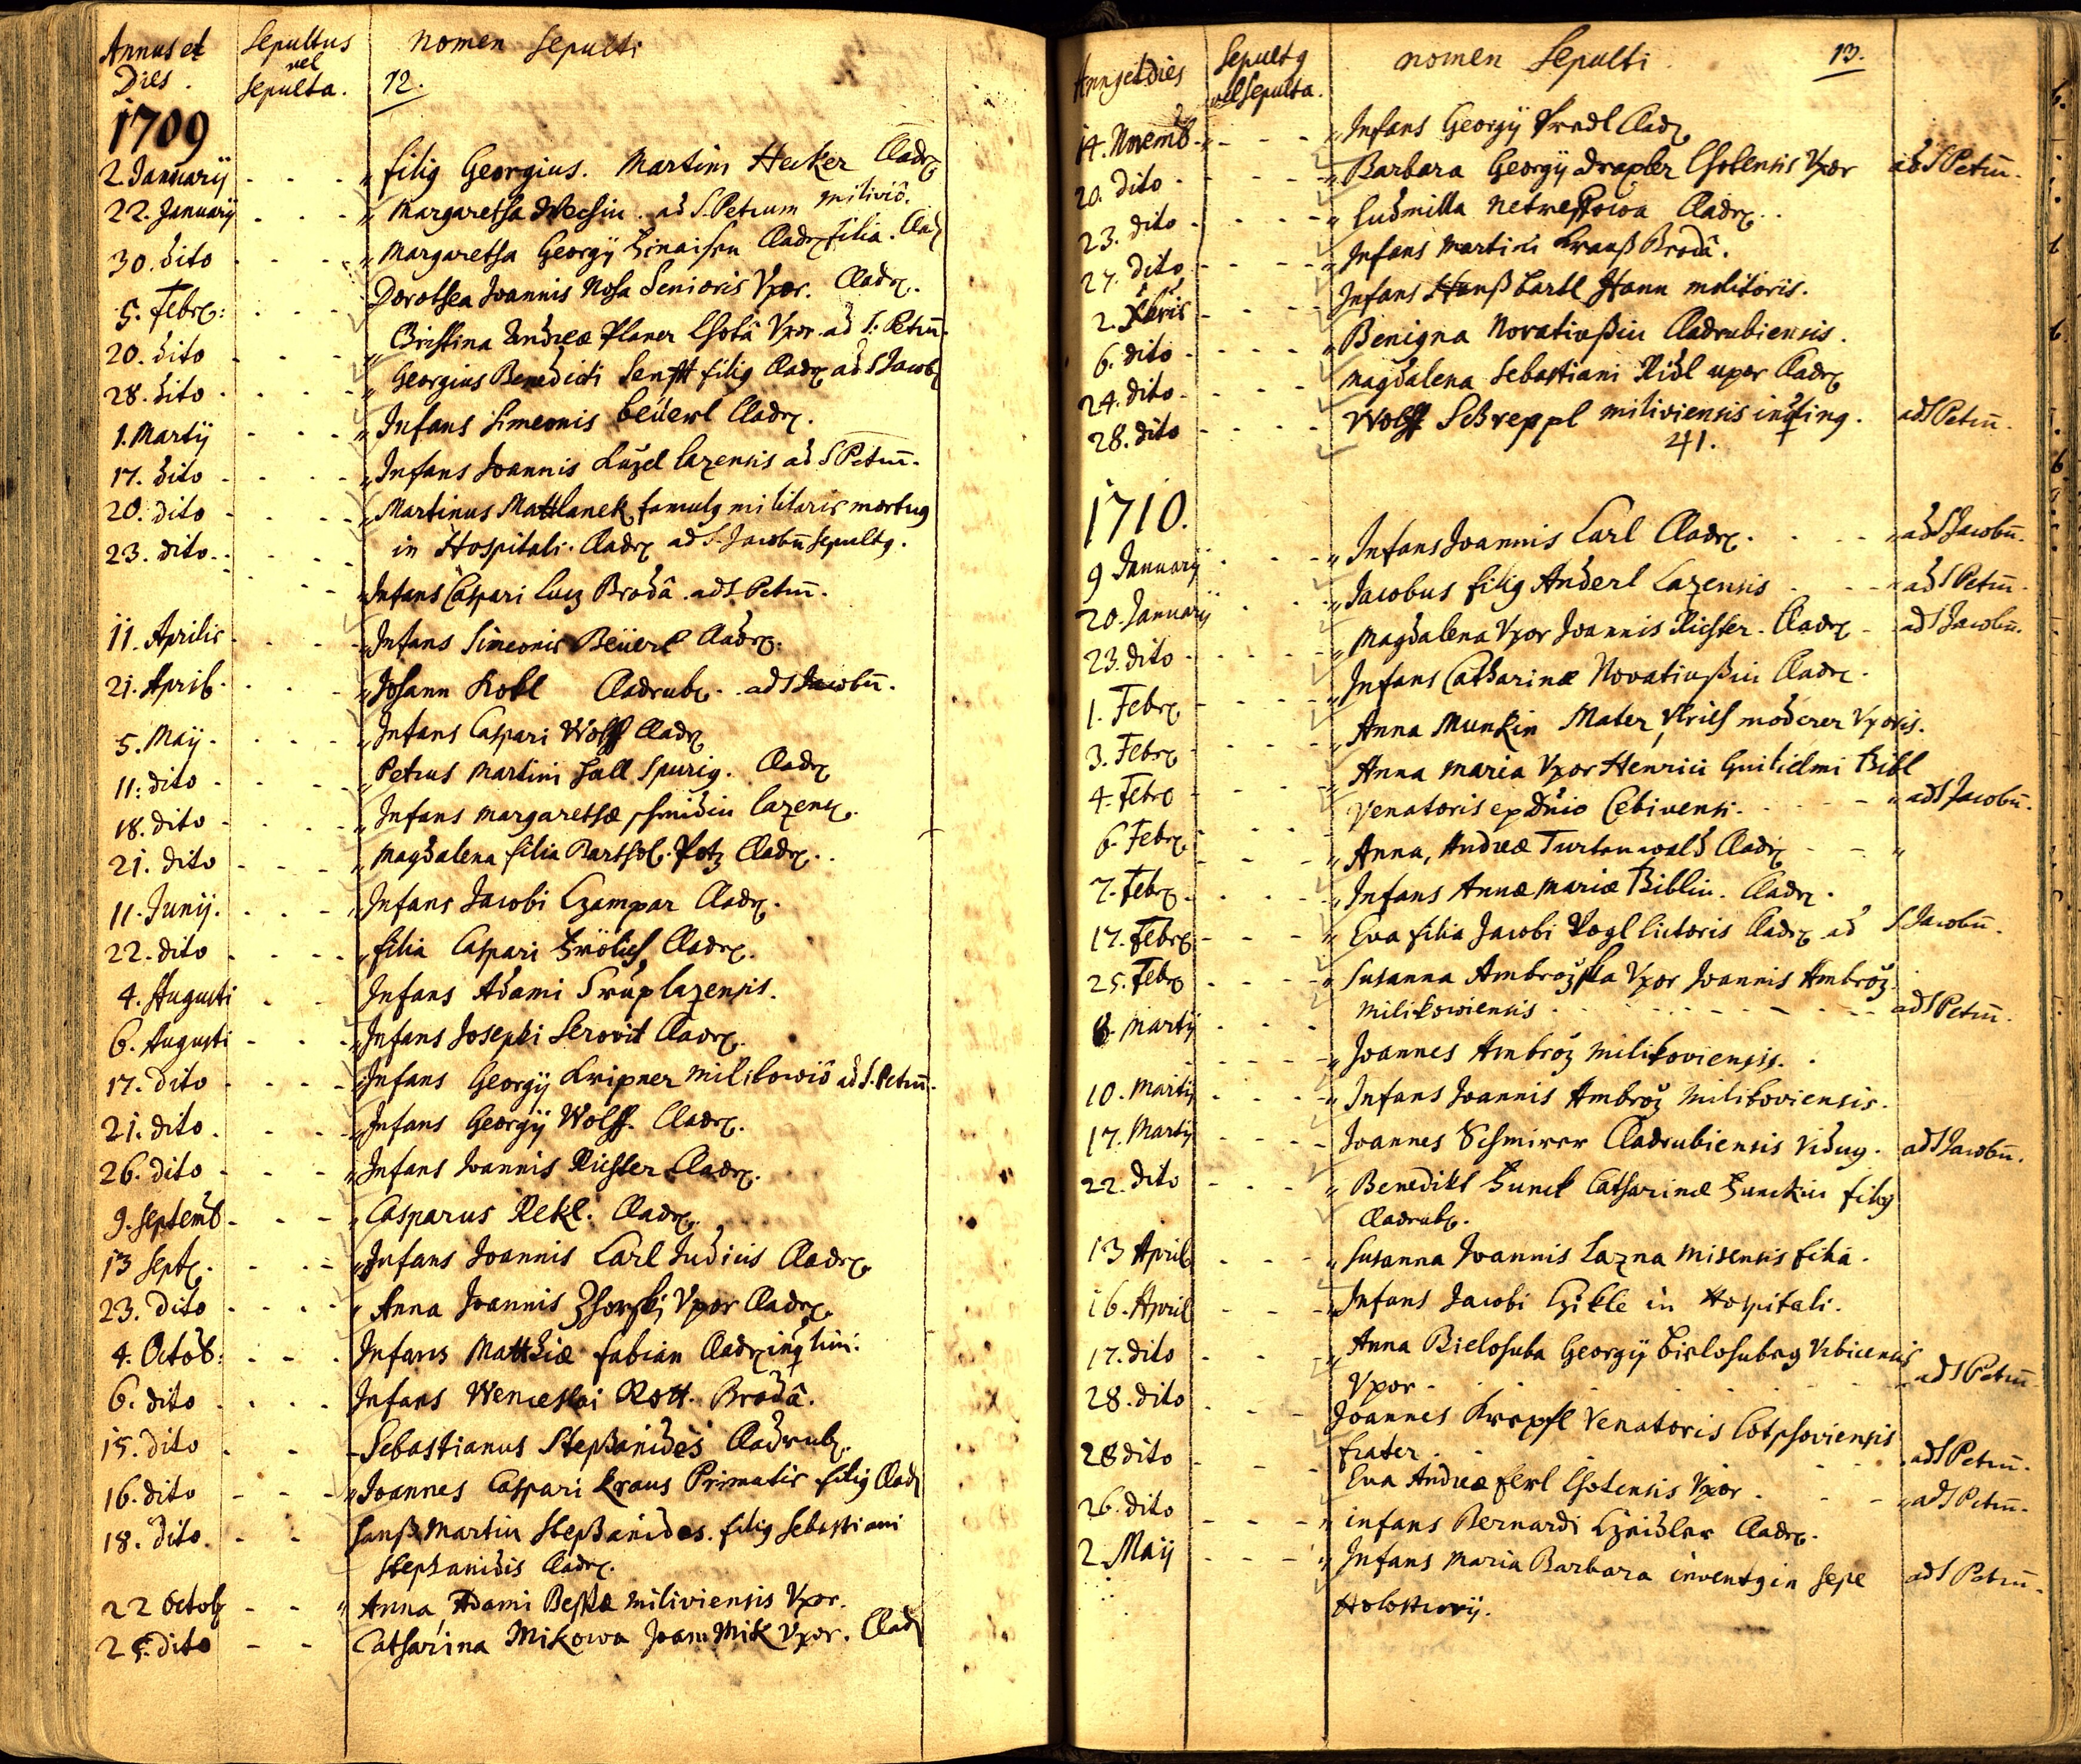 Annus et Dies. Sepultus vel Sepulta. nomen Sepulti
12.
1709
2. January filig Georgius. Martini Hecker Cladr.
22. January Margaretha ad S. Petrum
30. dito Margaretha Georgij Cladr. filia.
5. Febr: Dorothea Joannis Nosa Senioris Vxor. Cladr.
20. dito Christina Andreæ Planer Lhotâ Vxor ad S. Petrū.
28. dito Georgius Benedicti filig Cladr. ad S Jacob
1. Martij Infans Simeonis Beüerl Cladr.
17. dito Infans Joannis Kuzel Lazensis ad S Petrū.
20. dito Martinus Mattlanek famulg militaris mortug
23. dito in Hospitali. Cladr. ad S. Jacobū Sepultg.
Infans Caspari Lucz Brodâ ad S Petrū.
11. Aprilis Infans Simeonis Beüerl Cladr.
21. April. Johann Kokl Cladrub. ad S Jacobū.
5. Maij. Infans Caspari Wolff Cladr.
11. dito Petrus Martini Hall Spurig. Cladr.
18. dito Infans Margarethæ Schmidin Lazens.
21. dito Magdalena filia Barthol. Potz Cladr.
11. Junij. Infans Jacobi Czampar Cladr.
22. dito filia Caspari Frölich Cladr.
4. Augusti Infans Adami Srup Lazensis.
6. Augusti Infans Josephi Serovit Cladr.
17. dito Infans Georgij Kripner Milikowiô ad S. Petrū.
21. dito. Infans Georgij Wolff. Cladr.
26. dito Infans Joannis Richter Cladr.
9. Septemb Casparus Rekl. Cladr.
13 Sept. Infans Joannis Carl Judicis Cladr.
23. dito Anna Joannis Zhorski Vxor Cladr.
4. Octob: Infans Matthiæ Fabian Cladr.
6. dito Infans Wenceslai Rott. Brodâ.
15. dito Sebastianus Stephanides Cladrub.
16. dito Joannes Caspari Kraus Primatis filig Cladr
18. dito. Hanß Martin Stephanides. filig Sebastiani
Stephanidis Cladr.
22 Octob Anna Adami Beskæ Miliviensis Vxor.
25. dito Catharina Mikowa Joan Mik Vxor. Cladr
Anng et dies Sepultg vel Sepulta. nomen Sepulti 13.
14. Novemb. Infans Georgij Cladr.
20. dito Barbara Georgij Draxler Lhotensis Vxor ad S Petrū.
23. dito Ludmilla Cladr.
27. dito Infans Martini Krauß Brodâ.
2. Xbris Infans Hanß Bartl Hann molitoris.
6. dito Benigna Novatinßin Cladrubiensis.
24. dito Magdalena Sebastiani Ridl uxor Cladr.
28. dito Wolff Schreppl miliviensis inqling. ad S Petrū.
41.
1710.
9 January Infans Joannis Carl Cladr. ad S Jacobū.
20. January Jacobus filig Anderl Lazensis ad S Petrū.
23. dito Magdalena Vxor Joannis Richter. Cladr. ad S Jacobū.
1. Febr. Infans Catharinæ Novatinßin Cladr.
3. Febr. Anna Munkin Mater Vxoris.
4. Febr. Anna Maria Vxor Henrici Guilielmi Bibl
Venatoris ex Dnio Cebivensi. ad S Jacobū.
6. Febr. Anna, Andreæ Turtenwald Cladr.
7. Febr. Infans Annæ Mariæ Biblin. Cladr.
17. Febr. Eva filia Jacobi Vogl lictoris Cladr. ad S Jacobū.
25. Febr. Susanna Ambrozka Vxor Joannis Ambroz
Milikowiensis ad S Petrū.
8. Martij Joannes Ambroz Milikoviensis.
10. Martij Infans Joannis Ambroz Milikoviensis.
17. Martij Joannes Schmirer Cladrubiensis Vidug. ad S Jacobū.
22. dito Benedikt Funck Catharinæ Funckin filig
Cladrub.
13 April Susanna Joannis Lazna Misensis filia.
16. April Infans Jacobi Czikle in Hospitali.
17. dito Anna Bielohuba Georgij Vxor ad S Petrū
28. dito Joannes Venatoris
frater. ad S Petrū.
28 dito Eva Andreæ Ferl Lhotensis Vxor ad S Petrū.
26. dito infans Bernardi Czeidler Cladr.
2. Maij Infans Maria Barbara inventg in Sepe ad S Petrū.